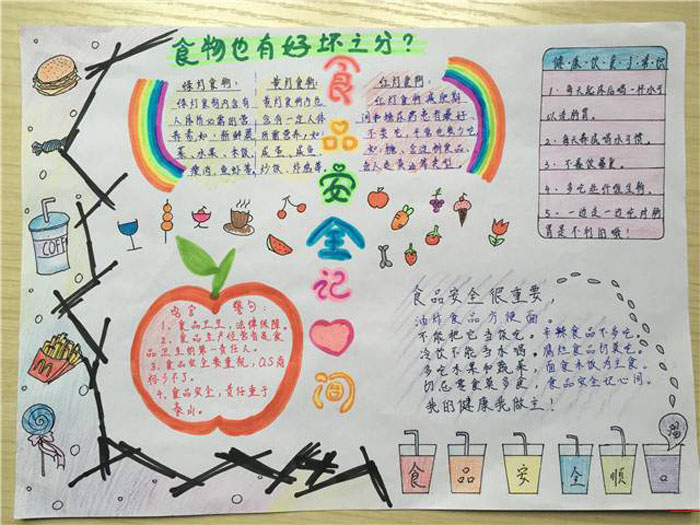 食物也有好坏之分？
绿灯食物：
绿灯食物内含有
人体所必需的营
养素，如，新鲜蔬
菜、水果、米饭、
瘦肉、鱼虾等。
黄灯食物：
黄灯食物内也
含有一定人体
所需营养，如，
咸蛋、咸鱼、
炒饭、炸鸡等
红灯食物：
红灯食物减肥期
间和糖尿病患者最好
不要吃，平常也要少吃。
食品安全记心间
健康饮食习惯
1、每天起床后喝一杯水可
以清肠胃。
3、不暴饮暴食。
5、一边走一边吃对肠
胃是不利的哦！
COFF
名言警句：
1、食品卫生，法律保障。
2、食品生产经营者是食
品卫生的第一责任人。
3、食品安全要重视，QS商
标少不了。
4、食品安全，责任重于
泰山。
食品安全很重要，
油炸食品方便面。
不能把它当饭吃。辛辣食品不多吃。
冷饮不能当水喝。腐烂食品别买吃。
多吃水果和蔬菜，面食米饭为主食。
切忌零食莫多食，食品安全记心间。
我的健康我做主！
食品安全顺口
溜